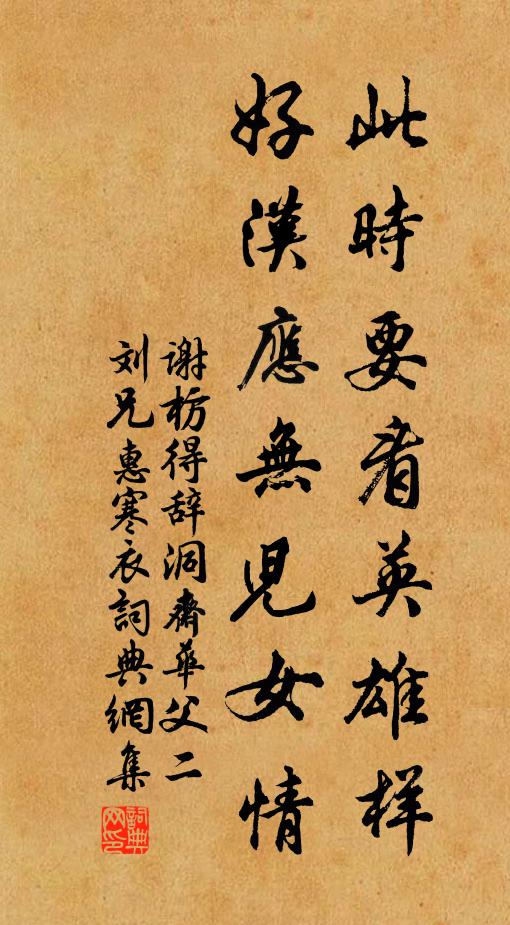 此時要看英雄樣
好漢應無兒女情
谢枋得辞洞齋華父二
刘兄惠寒衣詞典網集
詞典网印